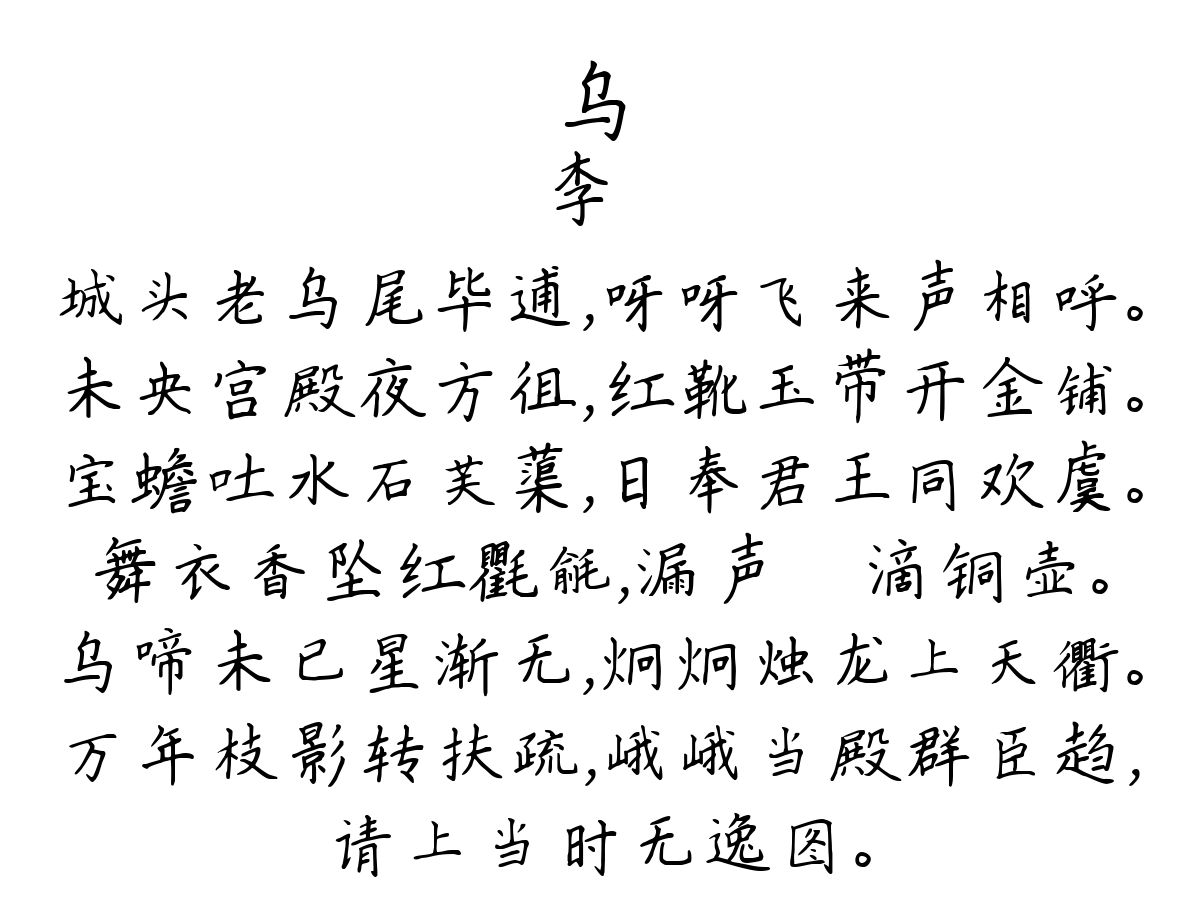 乌
李
城头老乌尾毕逋,呀呀飞来声相呼。
未央宫殿夜方徂,红靴玉带开金铺。
宝蟾吐水石芙蕖,日奉君王同欢虞。
舞衣香坠红氍毹,漏声 滴铜壶。
乌啼未已星渐无,炯炯烛龙上天衢。
万年枝影转扶疏,峨峨当殿群臣趋,
请上当时无逸图。